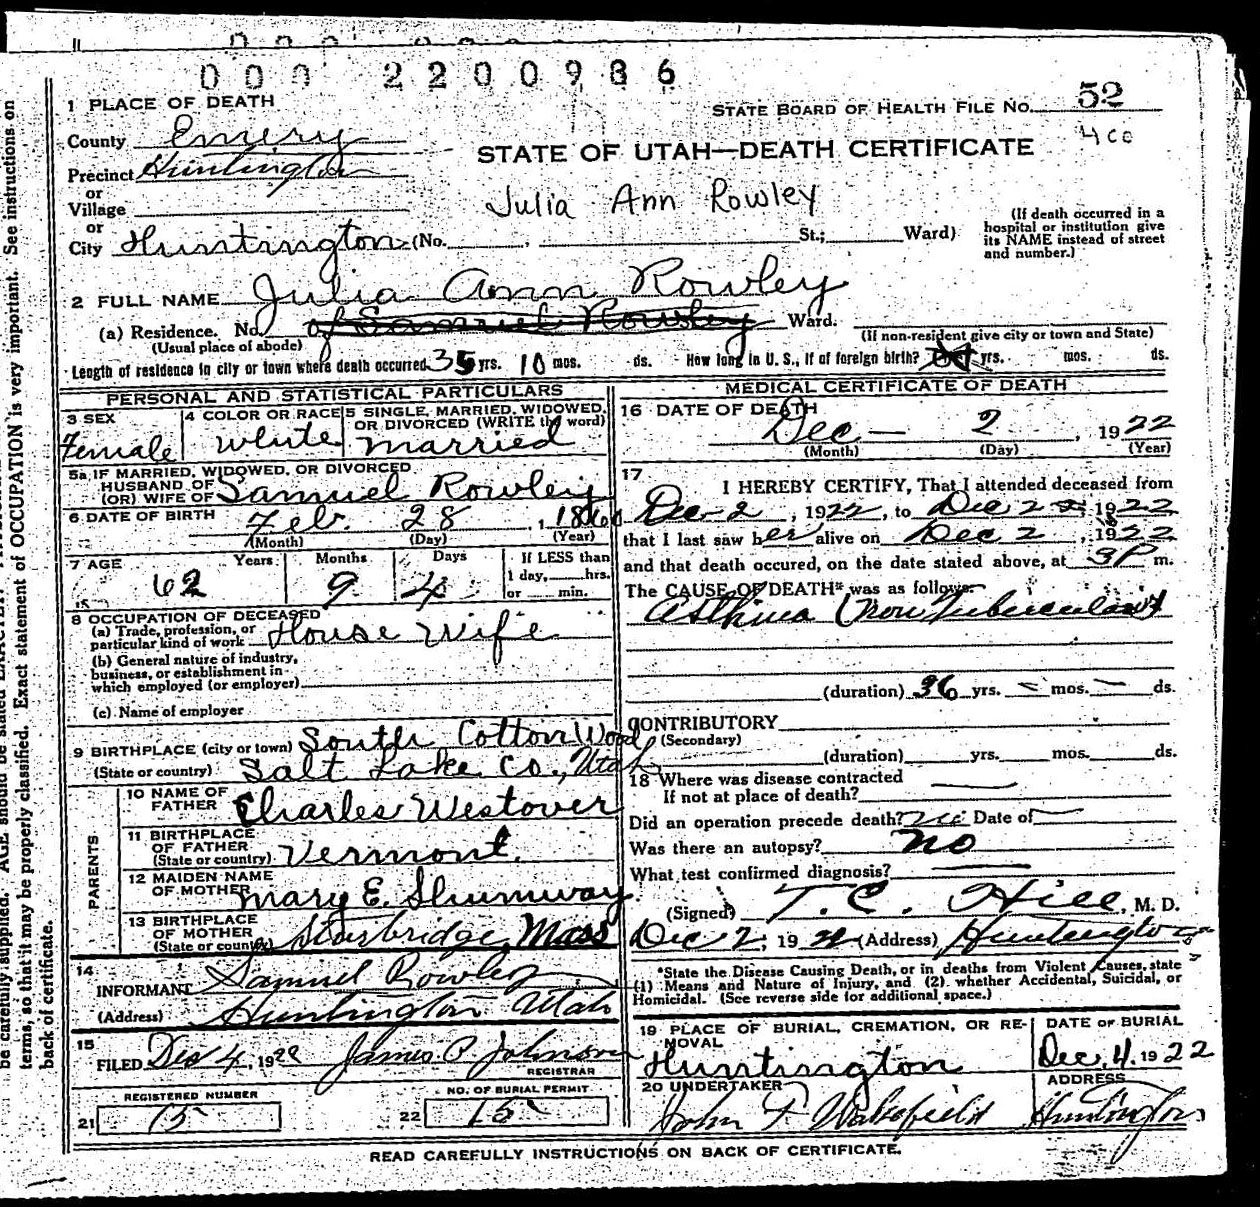 000 2200936
1 PLACE OF DEATH
STATE BOARD OF HEALTH FILE NO. 52
County Emery
400
STATE OF UTAH—DEATH CERTIFICATE
Precinct Huntington
or
Village
Julia Ann Rowley
or
City Huntington (No. , St.; Ward)
(If death occurred in a
hospital or institution give
its NAME instead of street
and number.)
2 FULL NAME Julia Ann Rowley
(a) Residence. No. of Samuel Rowley Ward.
(Usual place of abode)
(If non-resident give city or town and State)
Length of residence in city or town where death occurred 35 yrs. 10 mos. ds. How long in U. S., if of foreign birth? yrs. mos. ds.
PERSONAL AND STATISTICAL PARTICULARS
3 SEX
Female
4 COLOR OR RACE
White
5 SINGLE, MARRIED, WIDOWED,
OR DIVORCED (WRITE the word)
Married
5a IF MARRIED, WIDOWED, OR DIVORCED
HUSBAND OF
(OR) WIFE OF Samuel Rowley
6 DATE OF BIRTH Feb. 28, 1860
(Month) (Day) (Year)
7 AGE Years Months Days
62 9 4
If LESS than
1 day, hrs.
or min.
8 OCCUPATION OF DECEASED
(a) Trade, profession, or
particular kind of work House Wife
(b) General nature of industry,
business, or establishment in
which employed (or employer)
(c) Name of employer
9 BIRTHPLACE (city or town) South Cotton Wood
(State or country) Salt Lake Co., Utah
PARENTS
10 NAME OF
FATHER Charles Westover
11 BIRTHPLACE
OF FATHER
(State or country) Vermont.
12 MAIDEN NAME
OF MOTHER Mary E. Shumway
13 BIRTHPLACE
OF MOTHER
(State or country) Sturbridge, Mass
14
INFORMANT Samuel Rowley
(Address) Huntington Utah
15
FILED Dec 4, 1922 James P. Johnson
REGISTRAR
REGISTERED NUMBER
21 15
NO. OF BURIAL PERMIT
22 15
MEDICAL CERTIFICATE OF DEATH
16 DATE OF DEATH
Dec — 2, 1922
(Month) (Day) (Year)
17
I HEREBY CERTIFY, That I attended deceased from
Dec - 2, 1922, to Dec 2, 1922
that I last saw her alive on Dec 2, 1922
and that death occured, on the date stated above, at 3P m.
The CAUSE OF DEATH* was as follows:
Asthma (Non Tubercular)
(duration) 36 yrs. – mos. – ds.
CONTRIBUTORY
(Secondary)
(duration) yrs. mos. ds.
18 Where was disease contracted
If not at place of death? —
Did an operation precede death? no Date of —
Was there an autopsy? no
What test confirmed diagnosis? —
(Signed) T. C. Hill, M. D.
Dec 2, 1922 (Address) Huntington
*State the Disease Causing Death, or in deaths from Violent Causes, state
(1) Means and Nature of Injury, and (2) whether Accidental, Suicidal, or
Homicidal. (See reverse side for additional space.)
19 PLACE OF BURIAL, CREMATION, OR RE-
MOVAL
Huntington
DATE OF BURIAL
Dec. 4. 1922
20 UNDERTAKER
John F Wakefield
ADDRESS
Huntington
READ CAREFULLY INSTRUCTIONS ON BACK OF CERTIFICATE.
be carefully supplied. AGE should be stated
terms, so that it may be properly classified. Exact statement of OCCUPATION is very important. See instructions on
back of certificate.